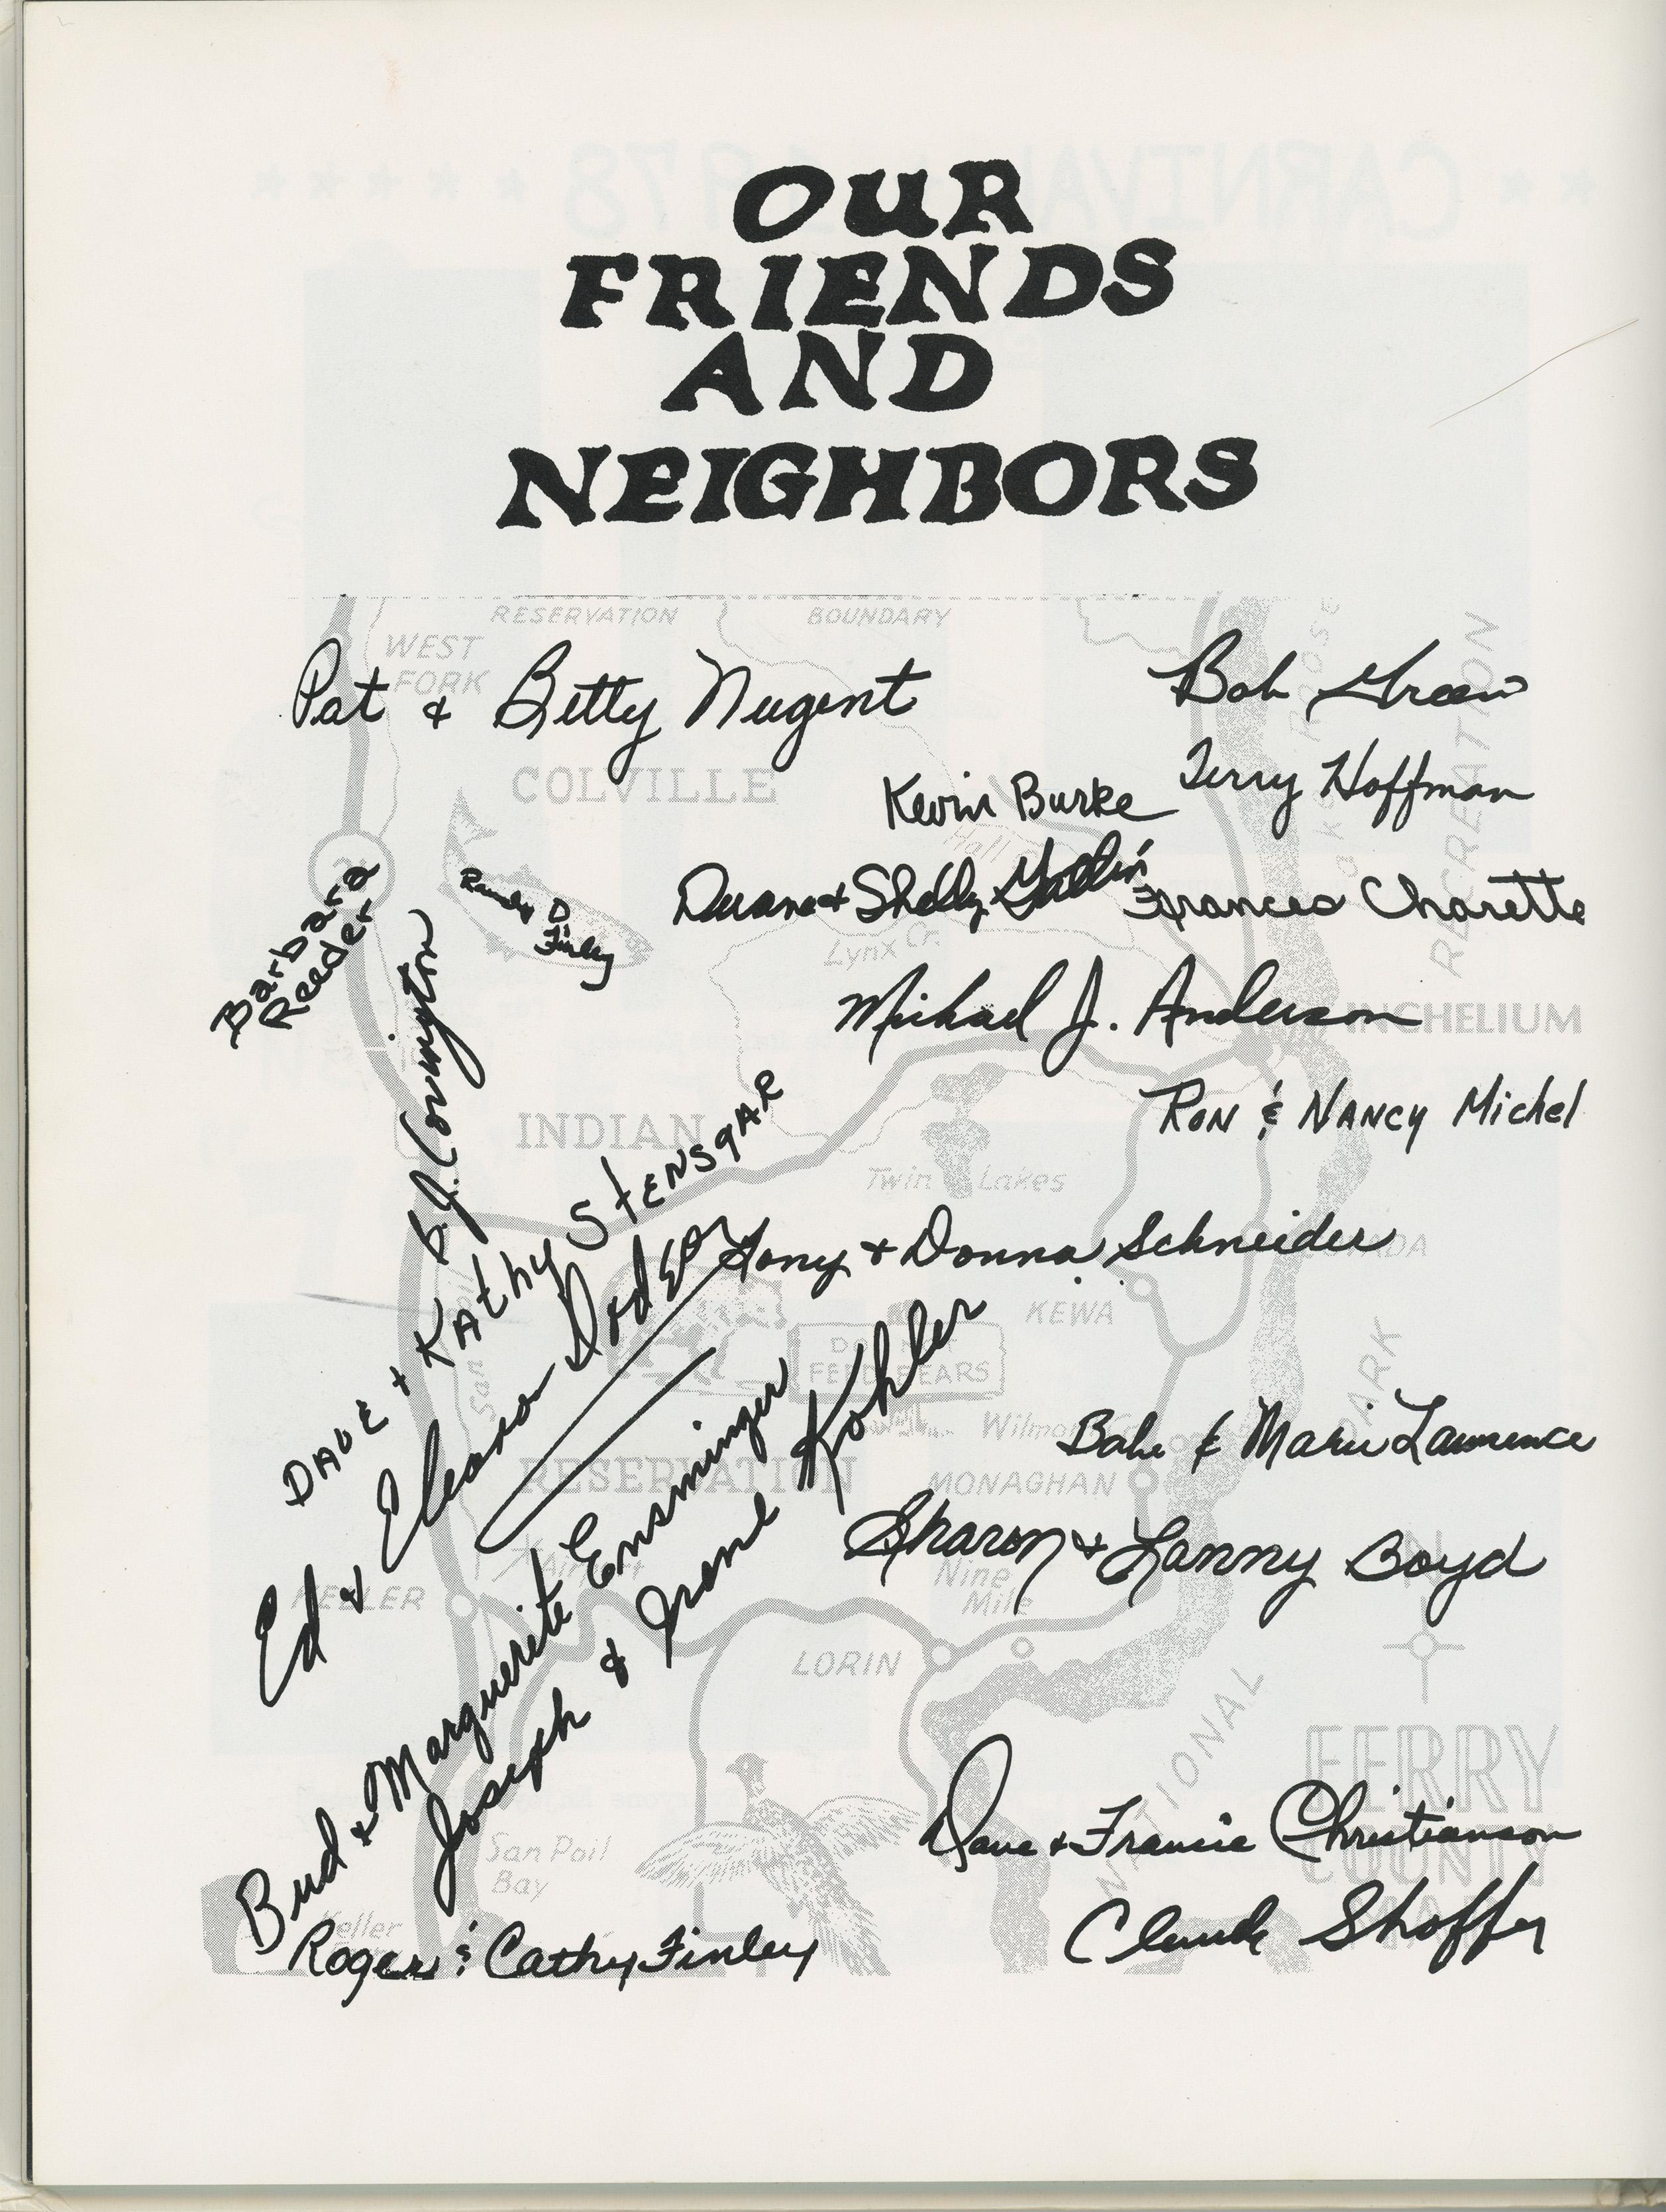 OUR
FRIENDS
AND
NEIGHBORS
RESERVATION BOUNDARY
WEST
FORK
Pat & Betty Nugent
Bob Green
COLVILLE
Kevin Burke
Terry Hoffman
Hall
Barbara
Reeder
Randy D
Finley
Duane & Shelly Gallin
Frances Charette
RECREATION
Lynx Cr.
B.J. Covington
Michael J. Anderson
INCHELIUM
INDIAN
Ron & Nancy Michel
Twin Lakes
DAVE + KAthy StENSgAR
Ed & Eleanor Doder
Tony & Donna Schneider
KEWA
FEED BEARS
PARK
Bud & Marguerite Ensminger
Joseph & Irene Kohler
Babe & Marie Lawrence
RESERVATION
MONAGHAN
Sharon & Lanny Boyd
Nine
Mile
KELLER
LORIN
NATIONAL
FERRY
COUNTY
Dave & Francie Christianson
San Poil
Bay
Keller
Claude Shoffer
Roger & Cathy Finley
CARNIVAL 1978